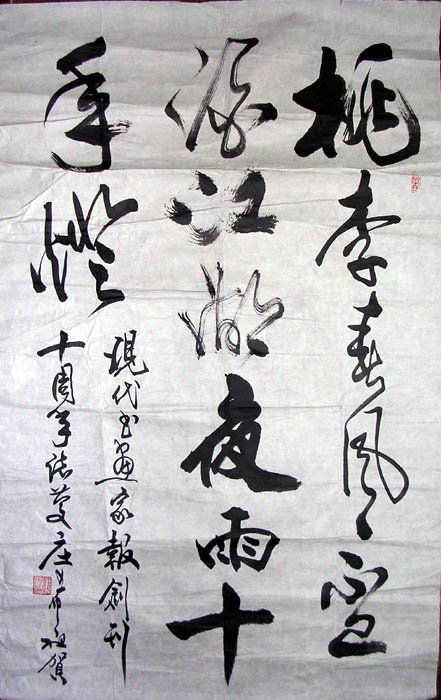 桃李春風一盃
酒江湖夜雨十
年燈
現代书畫家報創刊
十周年誌慶庄希祖賀